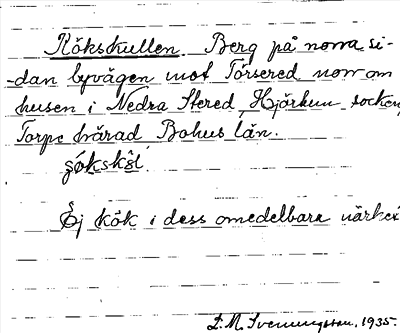 Kökskullen. Berg på norra si-
-dan byvägen mot Torsered norr om
husen i Nedra Stered, Hjärtum socken,
Torpe härad Bohus län.

Ej kök i dess omedelbara närhet
E. M. Svenungsson. 1935.